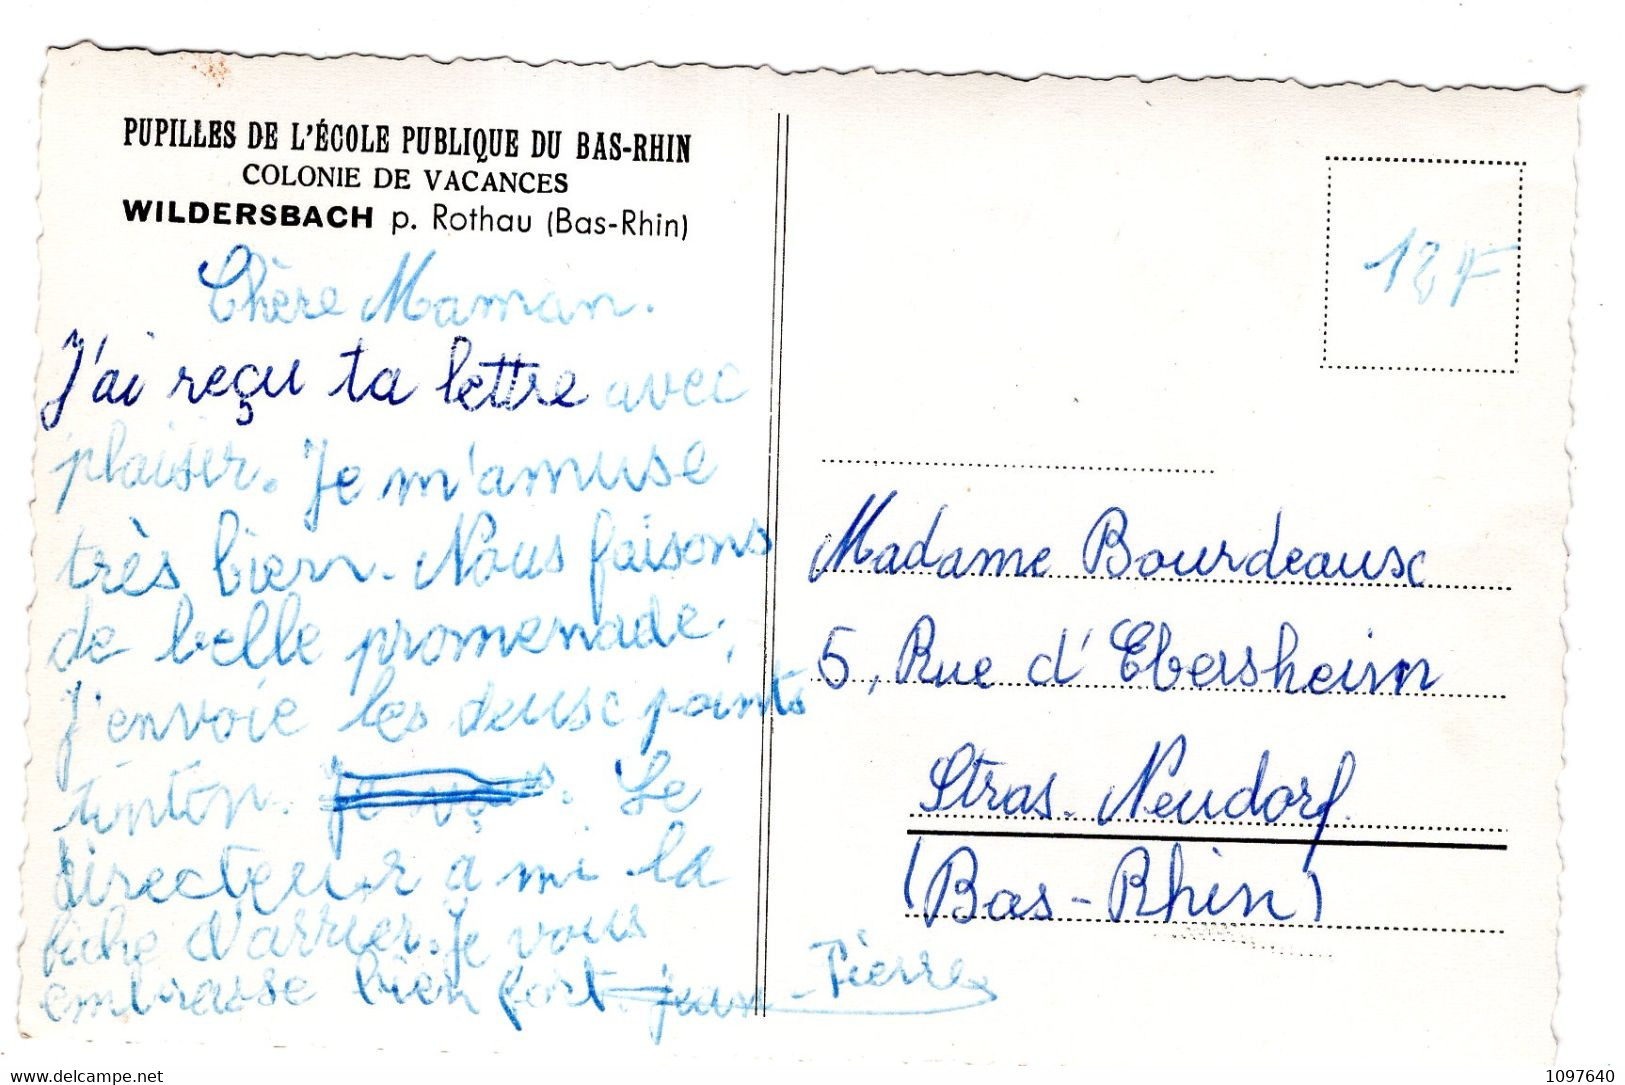 PUPILLES DE L'ÉCOLE PUBLIQUE DU BAS-RHIN
COLONIE DE VACANCES
WILDERSBACH p. Rothau (Bas-Rhin)
Chère Maman.
J'ai reçu ta lettre avec
plaisir. Je m'amuse
très bien. Nous faisons
de belle promenade.
J'envoie les deux points
tinton. Le
directeur a mi la
fiche d'arrier. Je vous
embrasse bien fort. Jean-Pierre
12F
Madame Bourdeaux
5, Rue d'Ebersheim
Stras. Neudorf
(Bas-Rhin)
1097640
delcampe.net